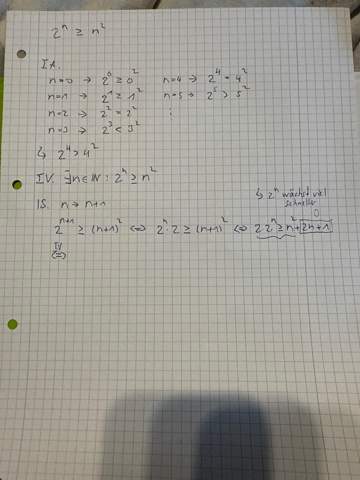 2ⁿ ≥ n²
I A.
n=0 → 2⁰ ≥ 0² n=4 → 2⁴ = 4²
n=1 → 2¹ ≥ 1² n=5 → 2⁵ > 5²
n=2 → 2² = 2² ⋮
n=3 → 2³ < 3²
↳ 2⁴ > 4²
IV. ∃n∈ℕ : 2ⁿ ≥ n²
↳ 2ⁿ wächst viel
schneller
IS. n → n+1
2ⁿ⁺¹ ≥ (n+1)² ⇔ 2ⁿ · 2 ≥ (n+1)² ⇔ 2·2ⁿ ≥ n² + 2n+1
IV
(=)